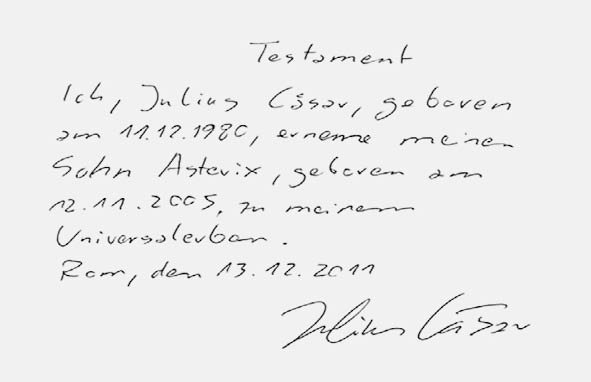 Testament
Ich, Julius Cäsar, geboren
am 11.12.1980, ernenne meinen
Sohn Asterix, geboren am
12.11.2005, zu meinem
Universalerben.
Rom, den 13.12.2011
Julius Cäsar